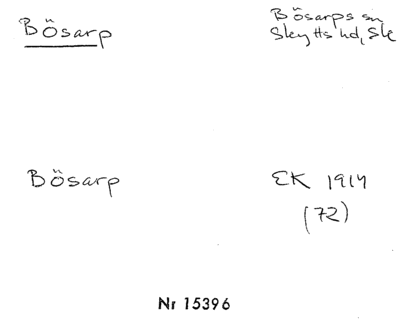 Bösarp
Bösarps sn
Skytts hd, Ske
Bösarp
EK 1914
(72)
Nr 15396